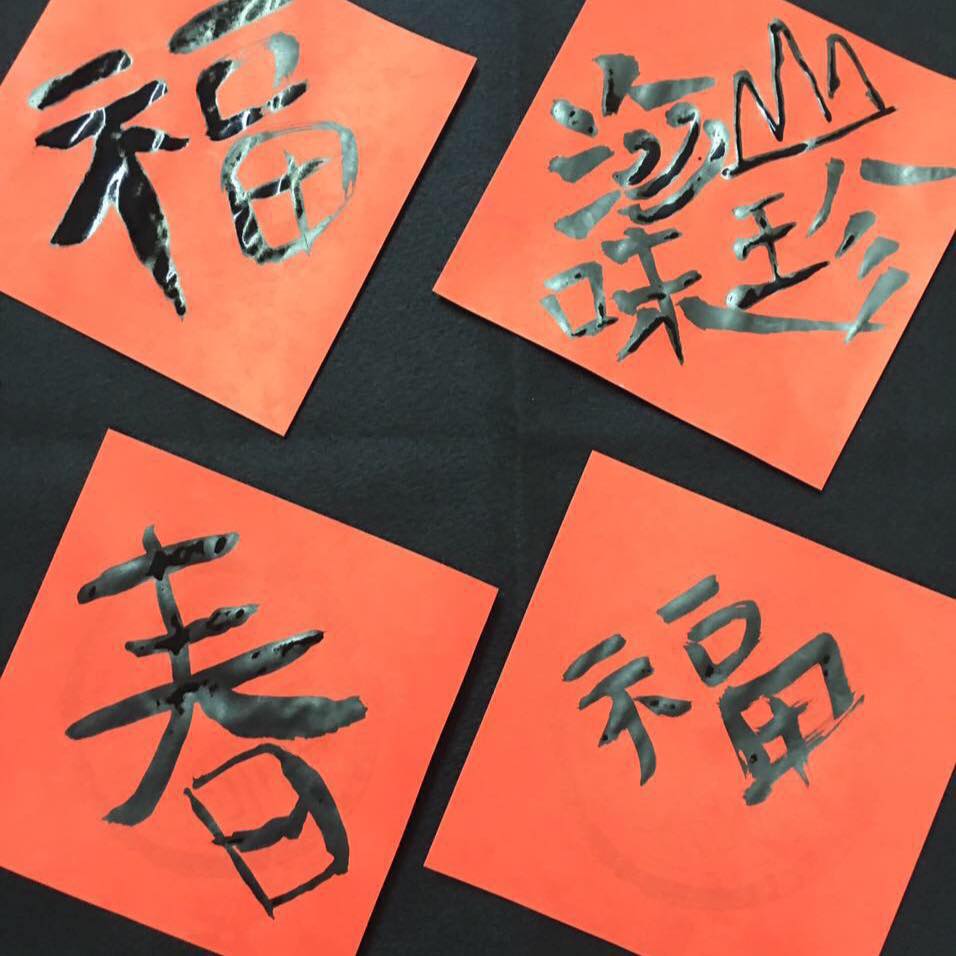 福
山珍
海味
春
福